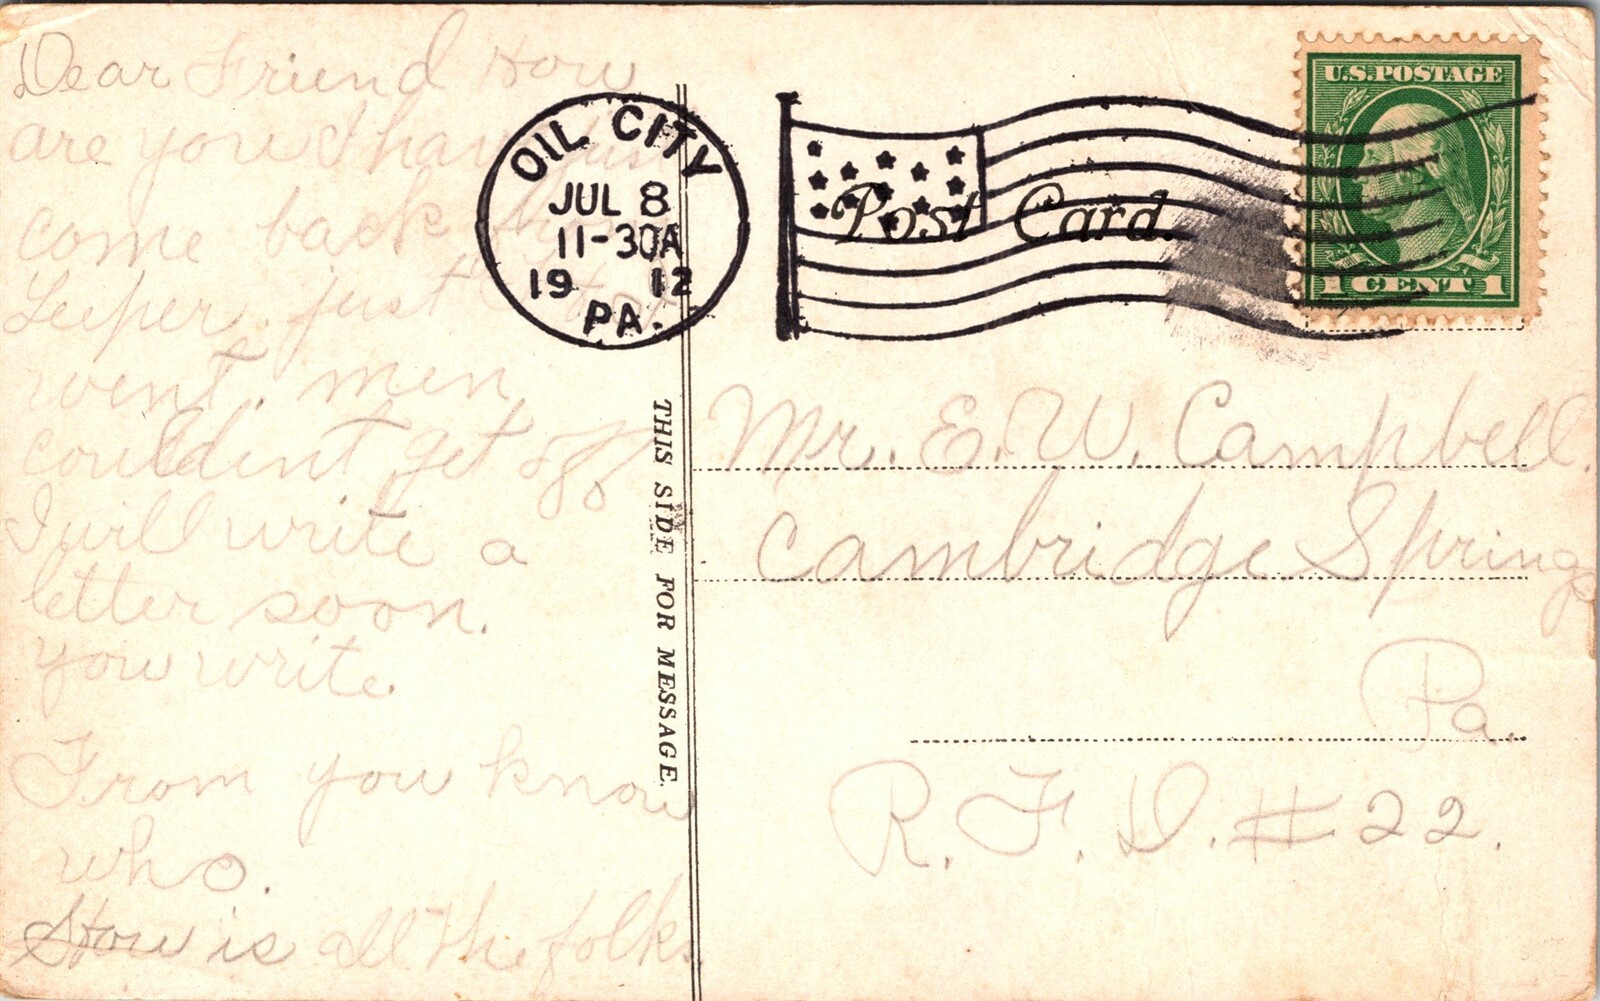 Dear Friend How
are you I have just
come back from
Leeper. just
went. men
couldent get off
I will write a
letter soon.
you write.
From you know
who.
How is all the folks.
OIL CITY
JUL 8
11-30A
1912
PA.
Post Card.
U.S. POSTAGE
1 CENT 1
THIS SIDE FOR MESSAGE.
Mr. E. W. Campbell.
Cambridge Springs
Pa.
R. F. D. # 22.